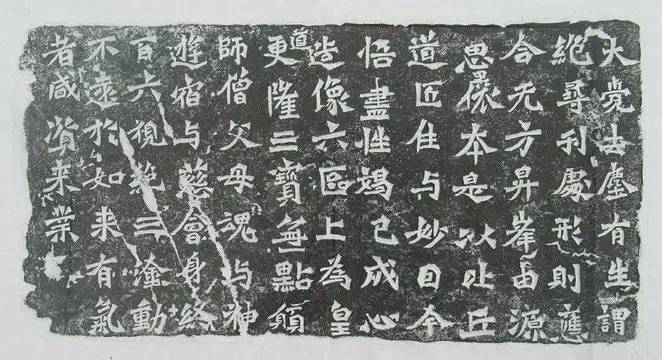 大覺去塵有生謂
絕尋刹處形則應
合无方昇峯由源
思儀本是以比丘
道匠住与妙因今
悟盡性竭己成心
造像六區上為皇
道更隆三寶無點願
師僧父母魂与神
遊宿与慈會身終
百六視絶三塗動
不遠於如來有氣
者咸資来業